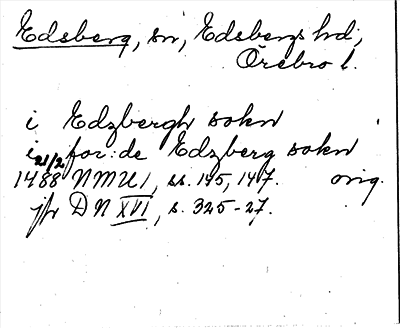 Edsberg, sn, Edsbergs hd,
Örebro l.
i Edzbergh sokn
i for:de Edzberg sokn
21/2 1488 NMU 1, ss. 145, 147. orig.
jfr DN XVI, s. 325-27.